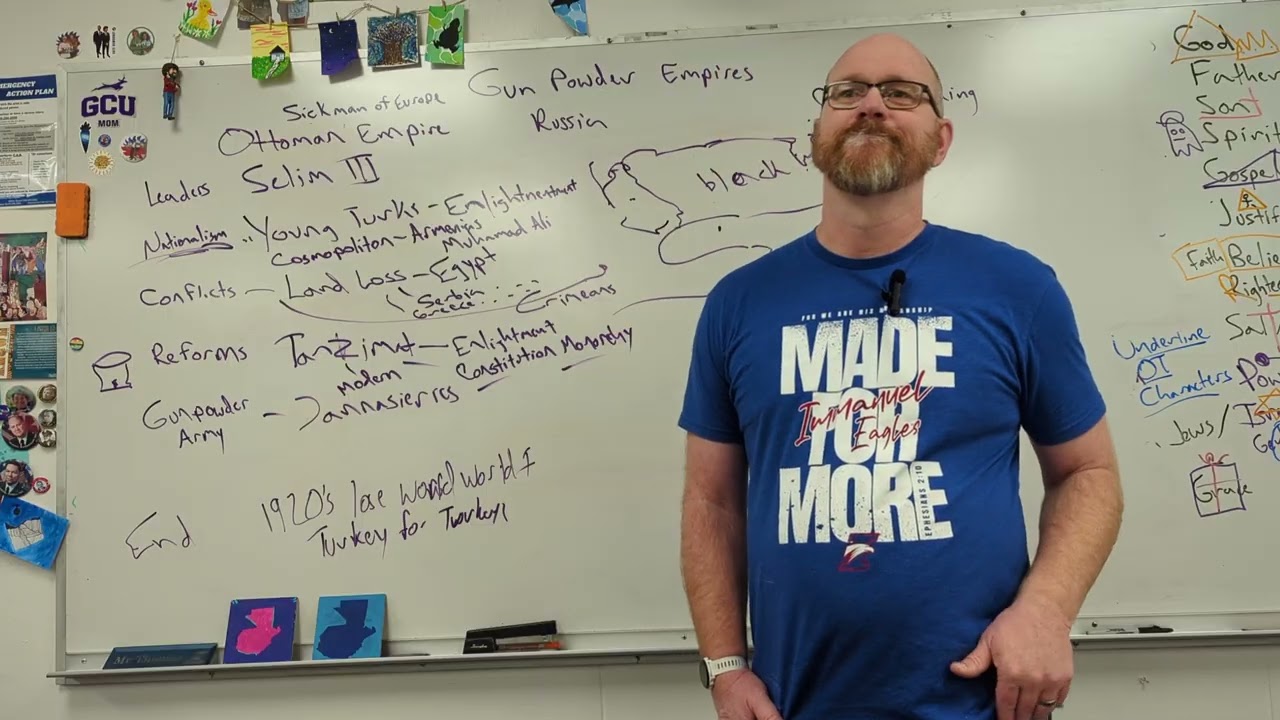 EMERGENCY
ACTION PLAN
GCU
MOM
Gun Powder Empires
Sickman of Europe
Ottoman Empire
Russia
Leaders Selim III
Nationalism Young Turks - Enlightnentment
Cosmopoliton - Armenians
Muhamad Ali
Conflicts - Land Loss - Egypt
Serbia
Greece
Crimeans
black
Reforms Tanzimat - Enlightment
modern Constitution Monarchy
Gunpowder - Jannasierres
Army
End 1920's lose world world I
Turkey for Turkey
FOR WE ARE HIS WORKMANSHIP
MADE
FOR
Immanuel
Eagles
MORE
EPHESIANS 2:10
God
Father
Son
Spirit
Gospel
Justif
Faith Belie
Righte
Sal
Underline
OT
Characters
Jews/
Grace